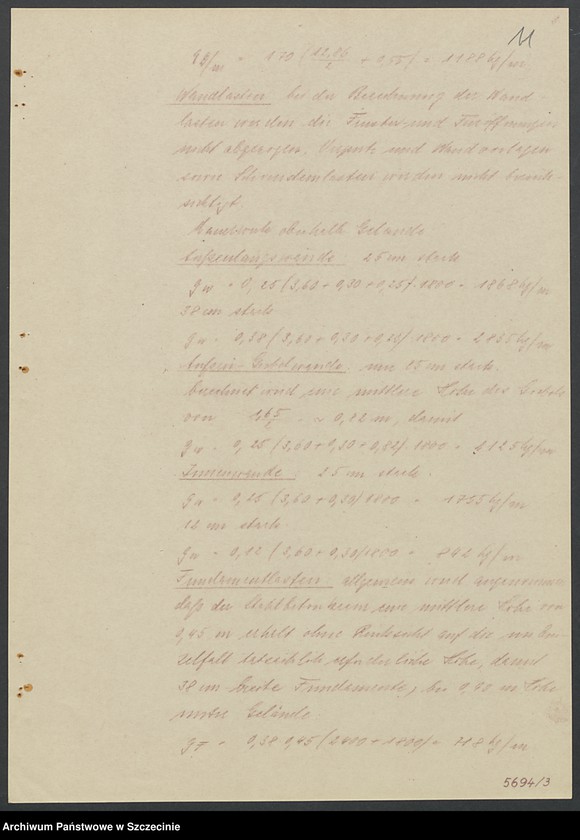 11
g D/m = 170 (12,86/2 + 0,55) = 1188 kg/m
Wandlasten bei der Berechnung der Wand-
lasten werden die Fenster und Türöffnungen
nicht abgezogen. Verputz und Wandvorlagen
sowie werden nicht berück-
sichtigt.
oberhalb Gelände
Außenlängswände 25 cm stark
g w = 0,25 (3,60 + 0,30 + 0,25) · 1800 = 1868 kg/m
38 cm stark
g w = 0,38 (3,60 + 0,30 + 0,25) 1800 = 2835 kg/m
Außen-Giebelwände: nur 25 cm stark.
berechnet wird eine mittlere Höhe des Giebels
von = ~ 0,82 m, damit
g w = 0,25 (3,60 + 0,30 + 0,82) · 1800 = 2125 kg/m
Innenwände: 25 cm stark.
g w = 0,25 (3,60 + 0,30) 1800 = 1755 kg/m
12 cm stark.
g w = 0,12 (3,60 + 0,30) 1800 = 842 kg/m
Fundamentlasten allgemein wird angenommen
daß der eine mittlere Höhe von
0,45 m erhält ohne Rücksicht auf die im Ein-
zelfall tatsächlich erforderliche Höhe, damit
38 cm breite Fundamente, bei 0,90 m Höhe
unter Gelände.
g F = 0,38 · 0,45 (2400 + 1800) = 718 kg/m
5694/3
Archiwum Państwowe w Szczecinie